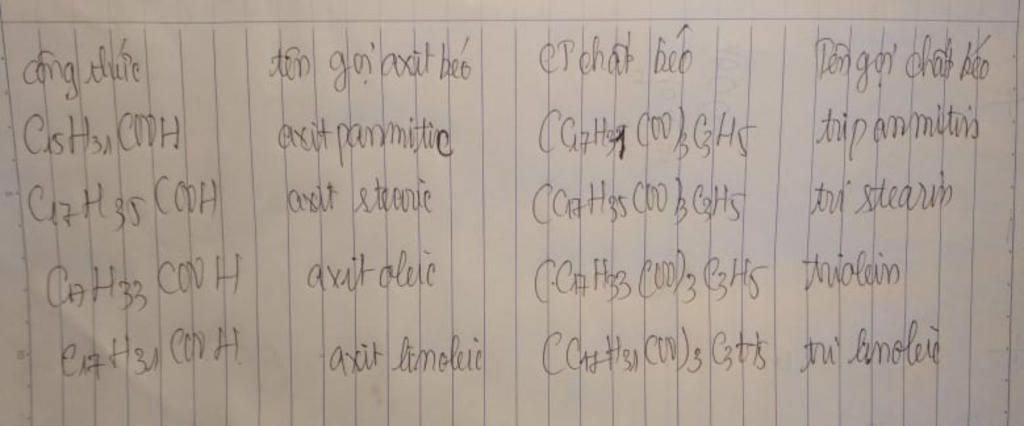 công thức tên gọi axit béo CT chất béo Tên gọi chất béo
C15H31COOH axit panmitic (C17H31COO)3C3H5 tripanmitin
C17H35COOH axit stearic (C17H35COO)3C3H5 tri stearin
C17H33COOH axit oleic (C17H33COO)3C3H5 triolein
C17H31COOH axit linoleic (C17H31COO)3C3H5 tri linoleic